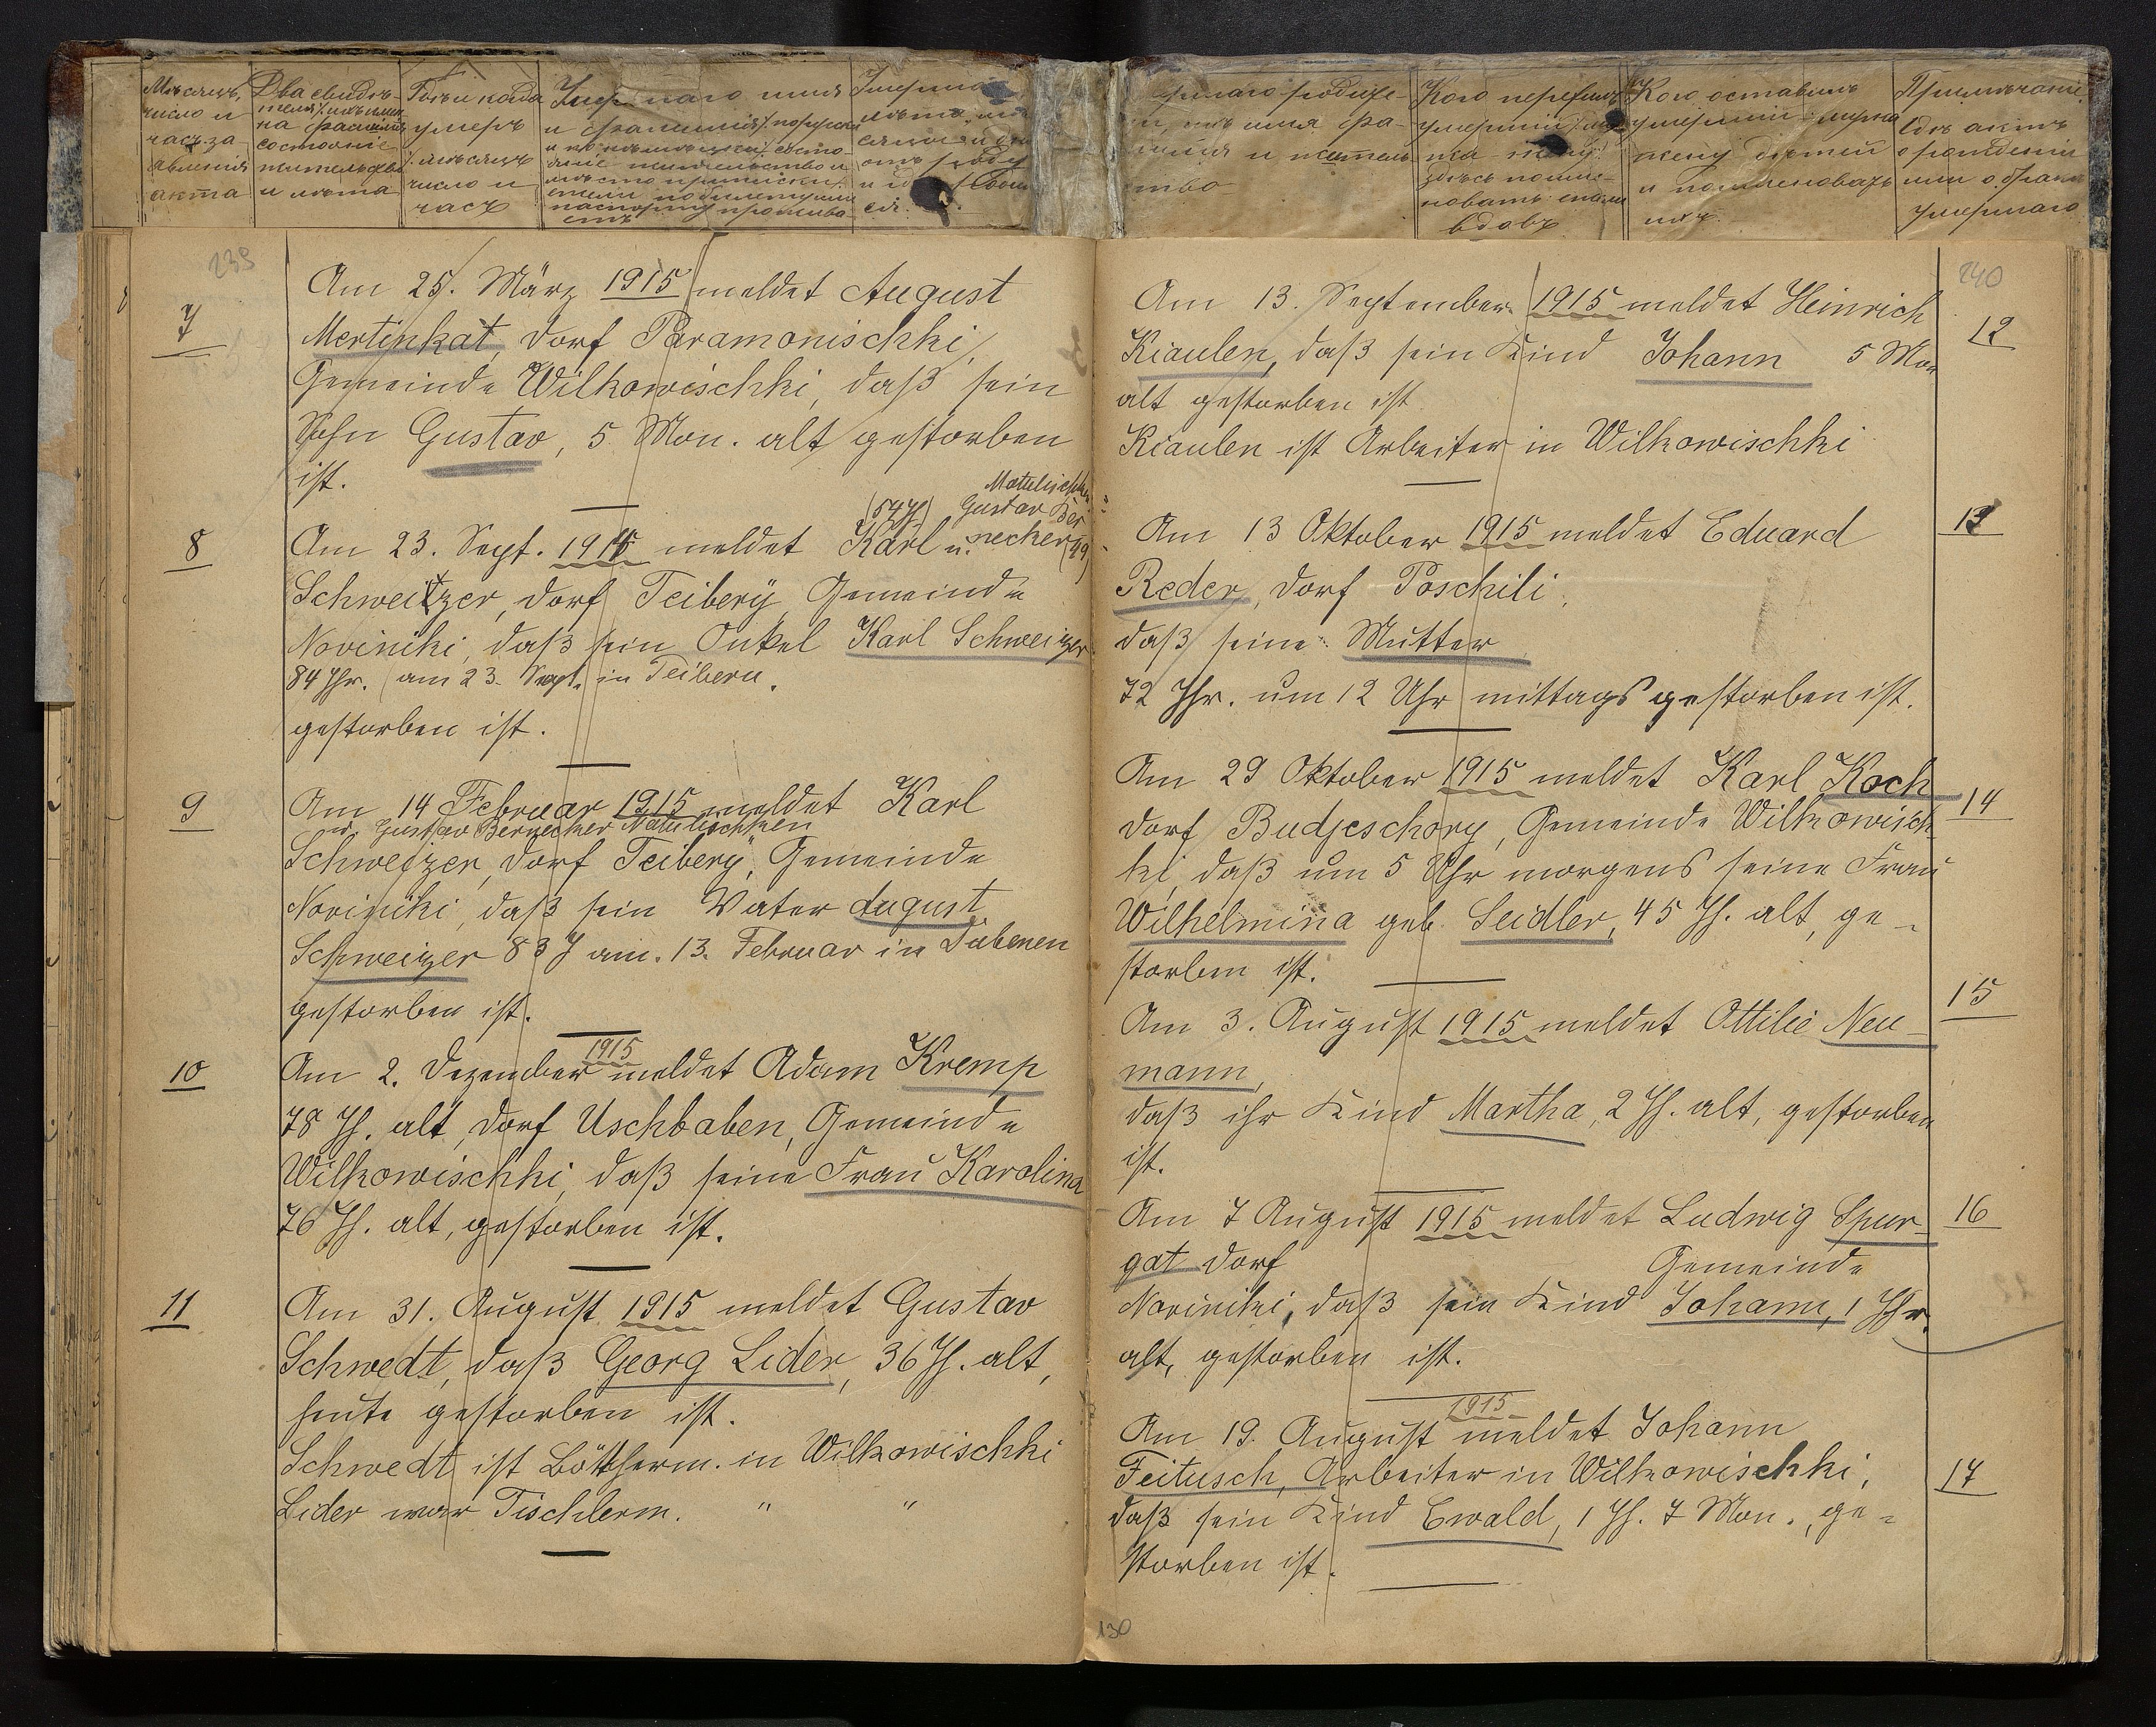 Мѣсяцъ,
число и
часъ за
явленія
акта
Два свидѣ-
теля, ихъ имена
на фамилія
состояніе
жительство
и лѣта
Гдѣ и когда
умеръ
мѣсяцъ
число и
часъ
имя
и фамилія
ство
Кого
умершій
здѣсь
новать
вдовъ
Кого оставилъ
умершій мужа
жену дѣтей
и поименовать
ихъ
Примѣчаніе
актъ
о рожденіи
или о
умершаго
239
7
Am 25. März 1915 meldet August
Mertinkat, Dorf Paramonischki,
Gemeinde Wilkowischki, daß sein
Sohn Gustav, 5 Mon. alt gestorben
ist.
8
Matulischken
(54 J) Gustav Ber
Am 23. Sept. 1915 meldet Karl u. necker (49)
Schweitzer, Dorf Teibery, Gemeinde
Noviniki, daß sein Onkel Karl Schweizer
84 Jhr. am 23. Sept. in Teibern.
gestorben ist.
9
Am 14 Februar 1915 meldet Karl
u. Gustav Bernecker Matulischken
Schweizer, Dorf Teibery, Gemeinde
Noviniki, daß sein Vater August
Schweizer 83 J am. 13. Februar in Dabenen
gestorben ist.
10
1915
Am 2. Dezember meldet Adam Kremp
78 Jh. alt, Dorf Uschbaben, Gemeinde
Wilkowischki, daß seine Frau Karolina
76 Jh. alt, gestorben ist.
11
Am 31. August 1915 meldet Gustav
Schwedt, daß Georg Lider, 36 Jh. alt,
heute gestorben ist.
Schwedt ist Böttcherm. in Wilkowischki
Lider war Tischlerm. " "
240
12
Am 13. September 1915 meldet Heinrich
Kiaulen, daß sein Kind Johann 5 Mon
alt gestorben ist
Kiaulen ist Arbeiter in Wilkowischki
13
Am 13 Oktober 1915 meldet Eduard
Reder, Dorf Poschili,
daß seine Mutter
72 Jhr. um 12 Uhr mittags gestorben ist.
14
Am 29 Oktober 1915 meldet Karl Koch
Dorf Budjeschory, Gemeinde Wilkowisch
ki, daß um 5 Uhr morgens seine Frau
Wilhelmina geb. Seidler, 45 Jh. alt, ge-
storben ist.
15
Am 3. August 1915 meldet Ottilie Neu-
mann,
daß ihr Kind Martha, 2 Jh. alt, gestorben
ist.
16
Am 7 August 1915 meldet Ludwig Spur-
gat Dorf Gemeinde
Noviniki, daß sein Kind Johann, 1 Jhr.
alt, gestorben ist.
17
1915
Am 19. August meldet Johann
Feitusch, Arbeiter in Wilkowischki,
daß sein Kind Ewald, 1 Jh. 7 Mon., ge-
storben ist.
130